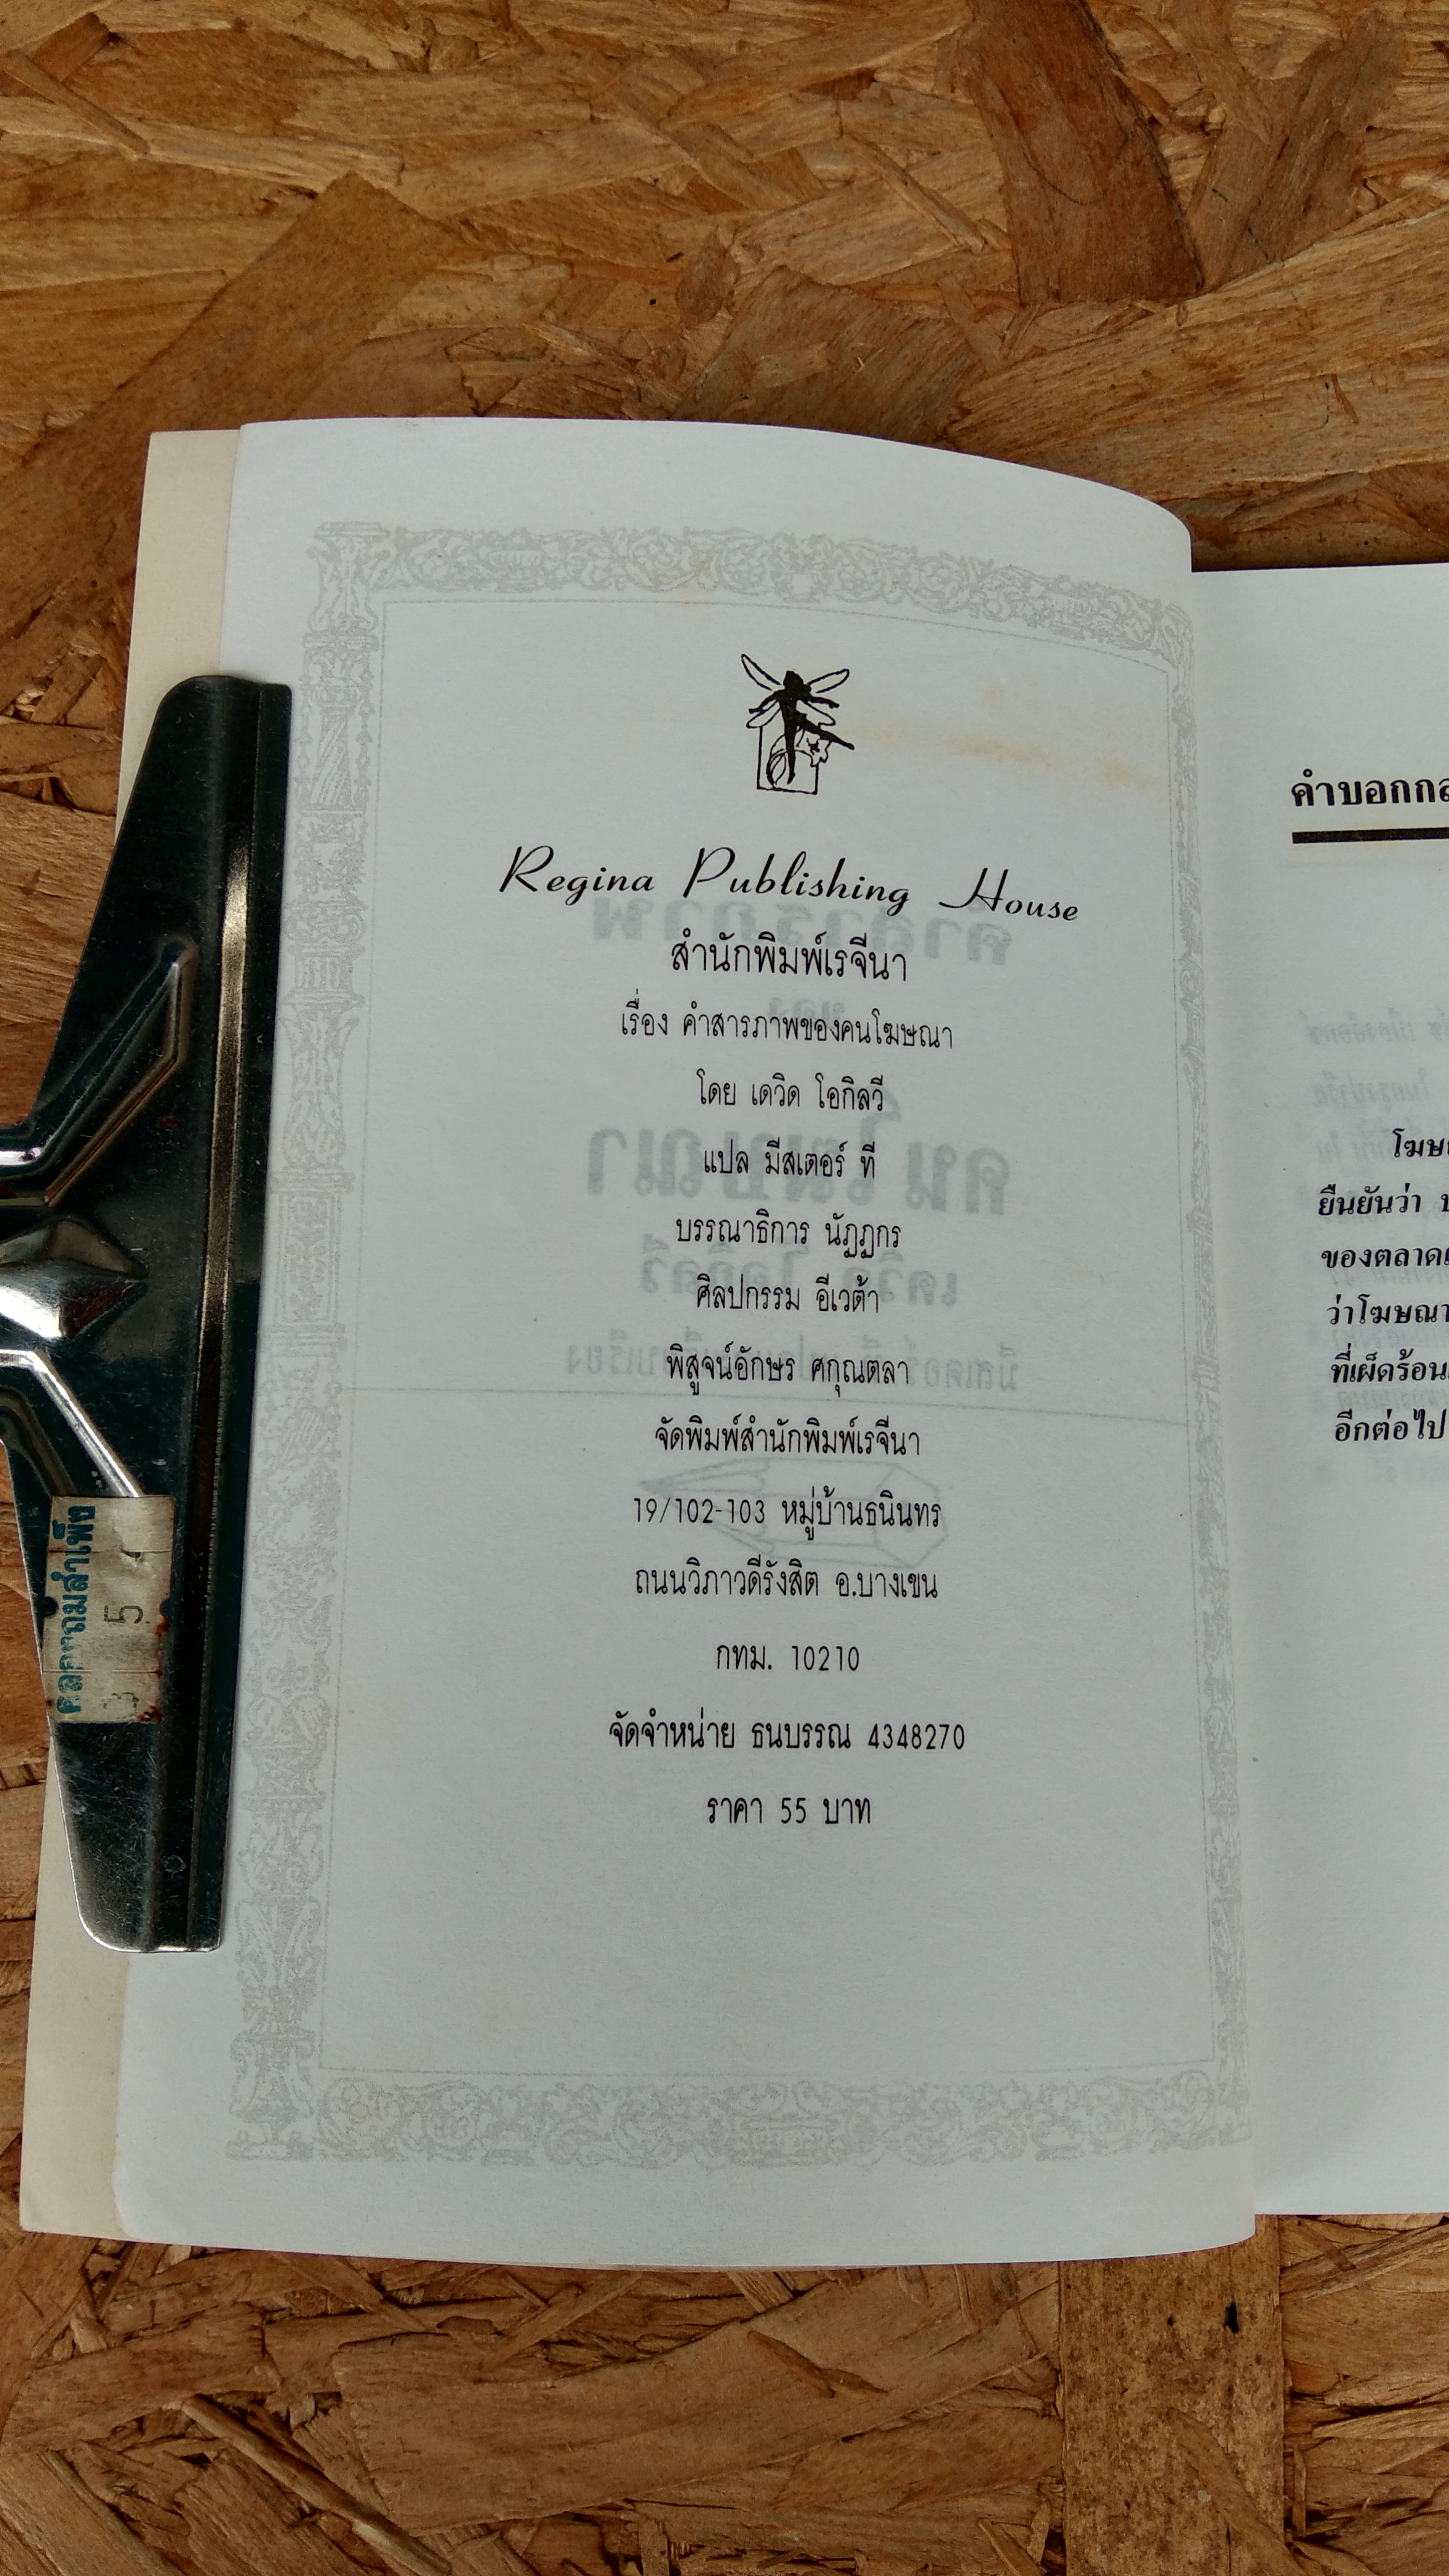 Regina Publishing House
สำนักพิมพ์เรจีนา
เรื่อง คำสารภาพของคนโฆษณา
โดย เดวิด โอกิลวี
แปล มีสเตอร์ ที
บรรณาธิการ นัฏฏกร
ศิลปกรรม อีเวต้า
พิสูจน์อักษร ศกุณตลา
จัดพิมพ์สำนักพิมพ์เรจีนา
19/102-103 หมู่บ้านธนินทร
ถนนวิภาวดีรังสิต อ.บางเขน
กทม. 10210
จัดจำหน่าย ธนบรรณ 4348270
ราคา 55 บาท
คำบอกกล
โฆษ
ยืนยันว่า
ของตลาด
ว่าโฆษณา
ที่เผ็ดร้อน
อีกต่อไป
5